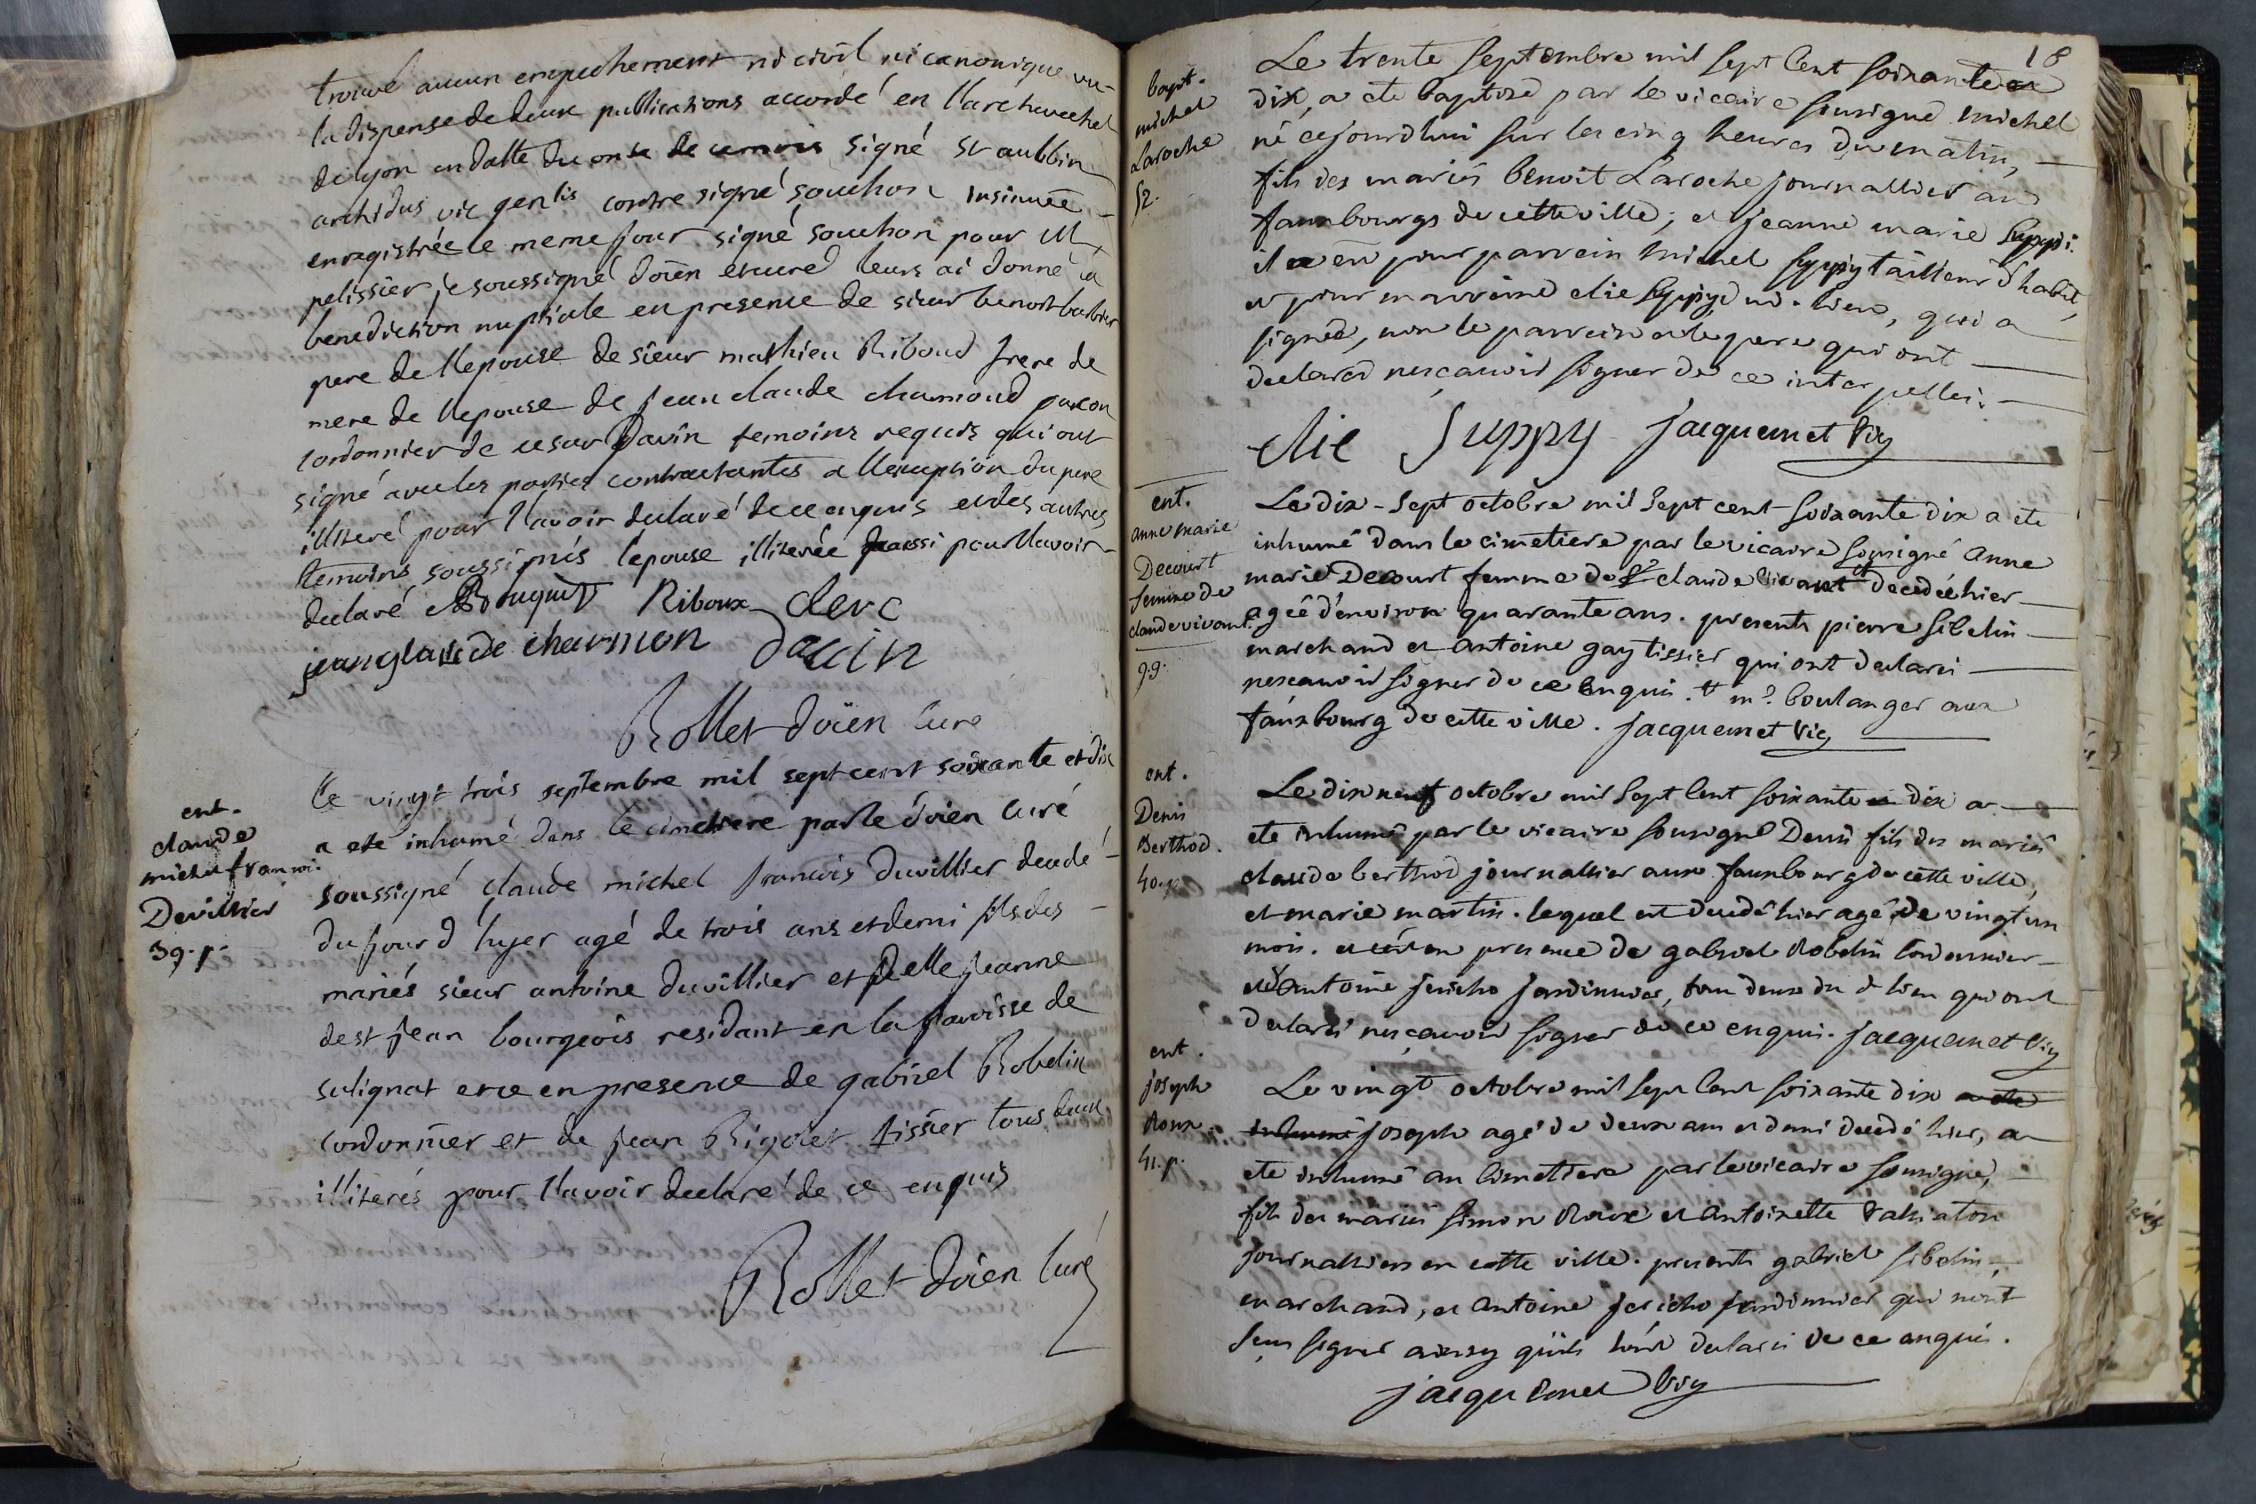 trouvé aucun empechement ni civil ni canonique vu
la dispense de deux publications accordé en l'archeveché
de lyon en datte du onze de ce mois signé St aubbin
archidus vic genlis contre signé souchon insinuée
enregistrée le meme jour signé souchon pour M
pelissier je soussigné doïen et curé leurs ai donné la
benediction nuptiale en presence de sieur benoit barbier
pere de l'epouse de sieur mathieu Riboud frere de
mere de l'epouse de jean claude chamoud garcon
cordonnier de cesar Davin temoins requis qui ont
signé avec les parties contractantes a l'exception du pere
illiteré pour l'avoir declaré de ce enquis et des autres
temoins soussignés l'epouse illiterée aussi pour l'avoir
declaré Bouquet Riboux clerc
jean glaude charmon davin
Rollet doïen curé
ent.
claude
michel francoi.
Devillier
39. p.
Le vingt trois septembre mil sept cent soixante et dix
a ete inhumé dans le cimetiere par le doïen curé
soussigné claude michel francois duvillier decedé
du jour d'hyer agé de trois ans et demi fils des
mariés sieur antoine duvillier et Delle jeanne
dest jean bourgeois residant en la parroisse de
sulignat et ce en presence de gabriel Robelin
cordonnier et de jean Rigolet tissier tous deux
illiterés pour l'avoir declaré de ce enquis
Rollet doïen curé
18
bapt.
michel
Laroche
52.
Le trente septembre mil sept cent soixante et
dix, a ete baptisé par le vicaire sousigné michel
né cejourdhui sur les cinq heures du matin,
fils des mariés benoit Laroche journallier aux
fauxbourgs de cette ville; et jeanne marie suppi.
il a eu pour parrein michel suppy tailleur d'habit,
et pour marreine elie suppy du d. lieu, qui a
signée, non le parrein et le pere qui ont
declaré nesçavoir signer de ce interpellés.
elie suppy jacquemet vic
ent.
anne marie
Decourt
femme de
claude vivant.
99.
Le dix-sept octobre mil sept cent soixante dix a ete
inhumé dans le cimetiere par le vicaire sousigné anne
marie Decourt femme de Sr claude vivant # decedée hier
agée d'environ quarante ans. presents pierre sibelin
marchand et antoine gay tissier qui ont declarés
nescavoir signer de ce enquis. # md boulanger aux
fauxbourg de cette ville. jacquemet vic
ent.
Denis
Berthod.
40. p.
Le dix neuf octobre mil sept cent soixante et dix a
ete inhumé par le vicaire sousigné Denis fils des mariés
claude berthod journallier aux fauxbourg de cette ville,
et marie martin. lequel est decedé hier agé de vingt un
mois. et ce en presence de gabriel Robelin cordonnier
et d'antoine jericho jardinnier, tous deux du d lieu qui ont
declarés nesçavoir signer de ce enquis. jacquemet vic
ent.
joseph
Roux.
41. p.
Le vingt octobre mil sept cent soixante dix a ete
inhumé joseph agé de deux ans et demi decedé hier, a
ete inhumé au cimetiere par le vicaire sousigné,
fils des mariés simon Roux et antoinette
journalliers en cette ville. presents gabriel sibelin,
marchand, et antoine jericho jardinnier qui n'ont
sçus signer ainsy quils l'ont declarés de ce enquis.
jacquemet vic